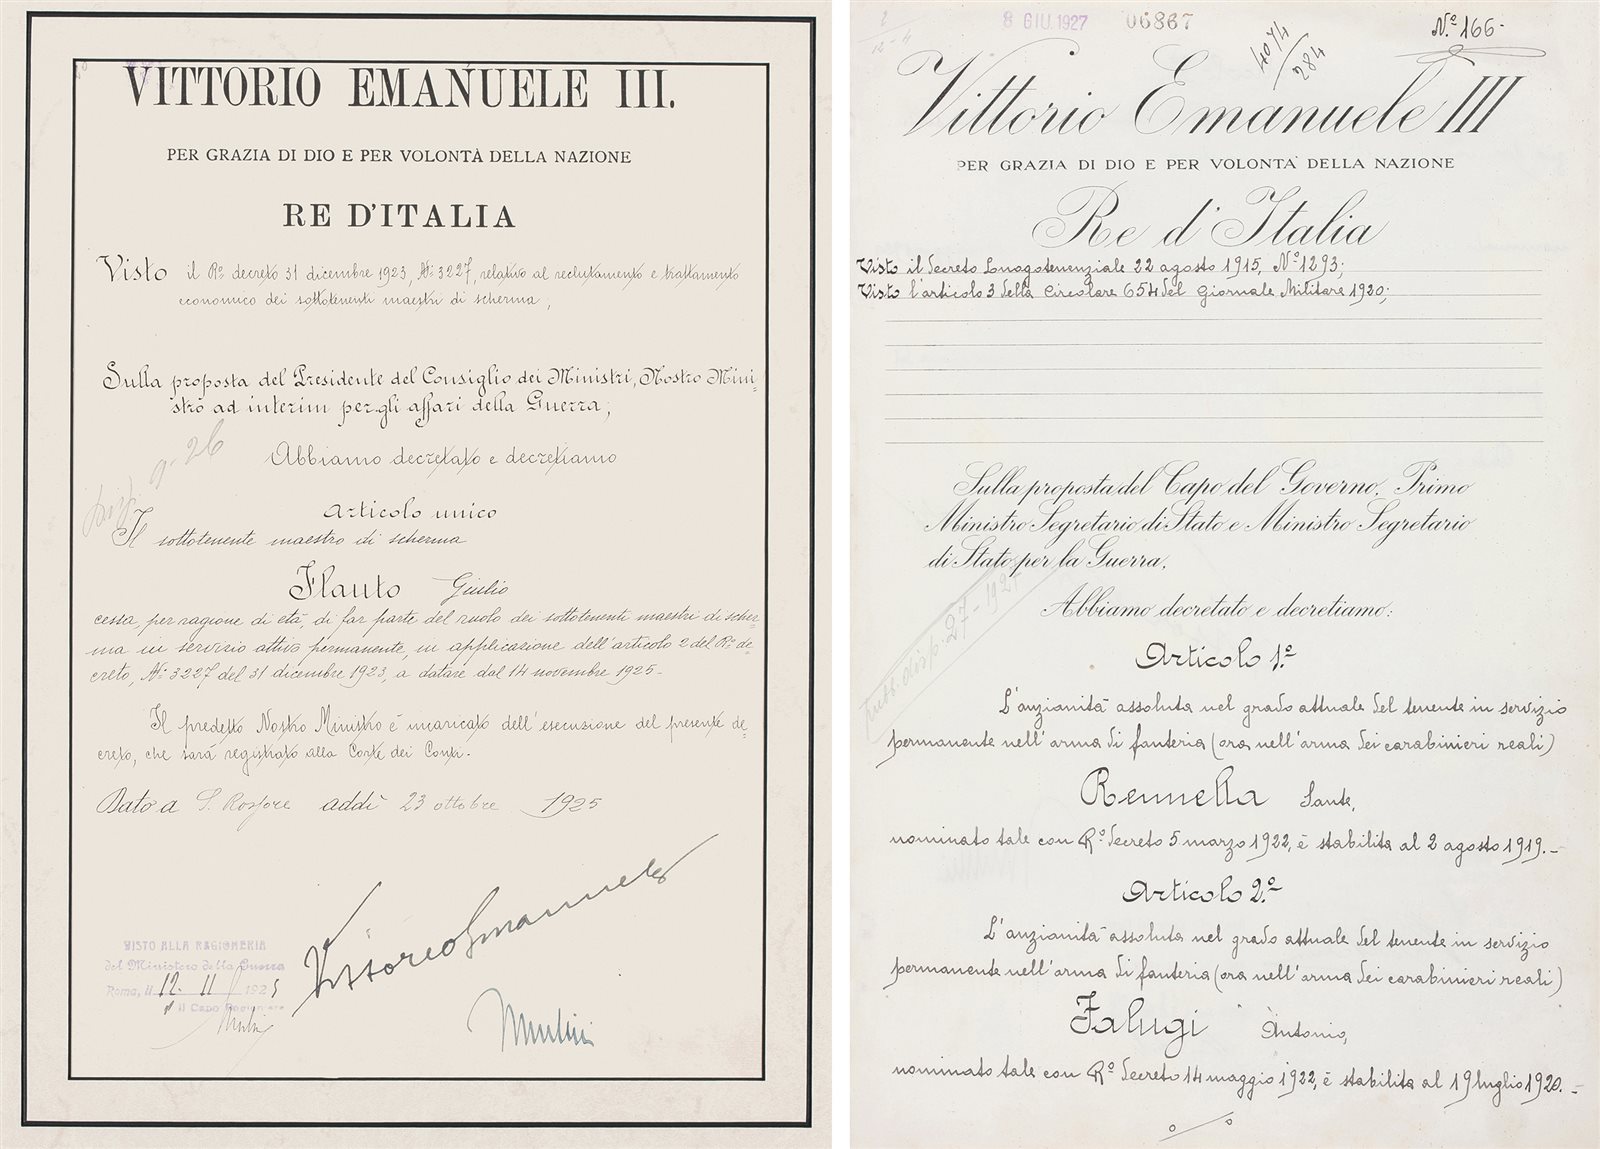 VITTORIO EMANUELE III.
PER GRAZIA DI DIO E PER VOLONTÀ DELLA NAZIONE
RE D'ITALIA
Visto il R.º decreto 31 dicembre 1923, Nº 3227, relativo al reclutamento e trattamento
economico dei sottotenenti maestri di scherma;
Sulla proposta del Presidente del Consiglio dei Ministri, Nostro Mini-
stro ad interim per gli affari della Guerra;
Abbiamo decretato e decretiamo
9-26
articolo unico
Il sottotenente maestro di scherma
Flauto Giulio
cessa, per ragione di età, di far parte del ruolo dei sottotenenti maestri di scher-
ma in servizio attivo permanente, in applicazione dell'articolo 2 del R.º de-
creto, Nº 3227 del 31 dicembre 1923, a datare dal 14 novembre 1925.-
Il predetto Nostro Ministro è incaricato dell'esecuzione del presente de-
creto, che sarà registrato alla Corte dei Conti.
Dato a S. Rossore addì 23 ottobre 1925
Vittorio Emanuele
VISTO ALLA RAGIONERIA
del Ministero della Guerra
Roma, il 12. 11 1925
Il Capo Ragioniere
8 GIU. 1927 06867
Nº 166-
4074/284
Vittorio Emanuele III
PER GRAZIA DI DIO E PER VOLONTA' DELLA NAZIONE
Re d'Italia
Visto il Decreto Luogotenenziale 22 agosto 1915, Nº 1293;
Visto l'articolo 3 della Circolare 654 del Giornale Militare 1920;
Sulla proposta del Capo del Governo, Primo
Ministro Segretario di Stato e Ministro Segretario
di Stato per la Guerra,
Abbiamo decretato e decretiamo:
Articolo 1.º
L'anzianità assoluta nel grado attuale del tenente in servizio
permanente nell'arma di fanteria (ora nell'arma dei carabinieri reali)
Rennella Sante,
nominato tale con R.º decreto 5 marzo 1922, è stabilita al 2 agosto 1919.-
Articolo 2.º
L'anzianità assoluta nel grado attuale del tenente in servizio
permanente nell'arma di fanteria (ora nell'arma dei carabinieri reali)
Falugi Antonio,
nominato tale con R.º decreto 14 maggio 1922, è stabilita al 19 luglio 1920.-